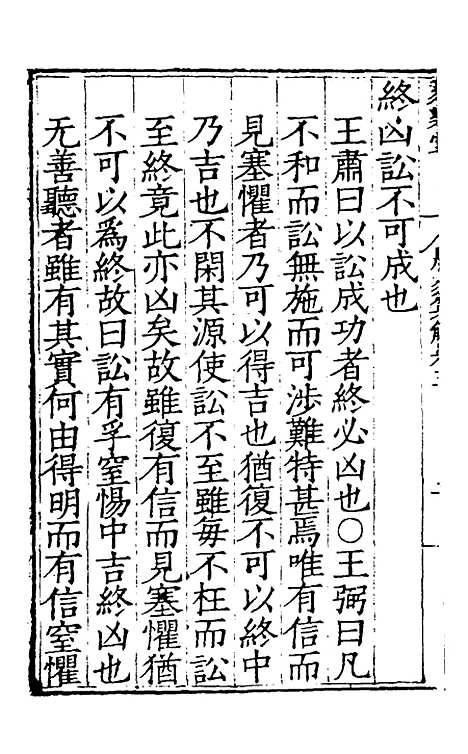 終凶訟不可成也
王肅曰以訟成功者終必凶也○王弼曰凡
不和而訟無施而可涉難特甚焉唯有信而
見塞懼者乃可以得吉也猶復不可以終中
乃吉也不閑其源使訟不至雖每不枉而訟
至終竟此亦凶矣故雖復有信而見塞懼猶
不可以爲終故曰訟有孚窒惕中吉終凶也
无善聽者雖有其實何由得明而有信窒懼